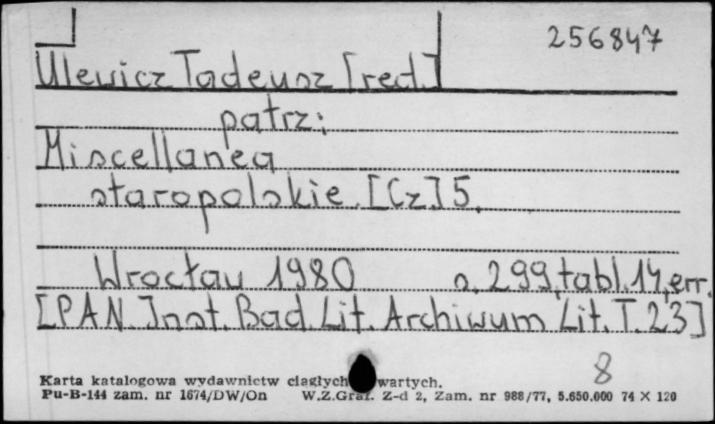 256847
Ulewicz Tadeusz [red.]
patrz:
Miscellanea
staropolskie. [Cz.] 5.
Wrocław 1980 s. 299, tabl. 14, err.
[PAN. Inst. Bad. Lit. Archiwum Lit. T. 23]
8
Karta katalogowa wydawnictw ciągłych wartych.
Pu-B-144 zam. nr 1674/DW/On W.Z.Graf. Z-d 2, Zam. nr 988/77, 5.650.000 74 X 120